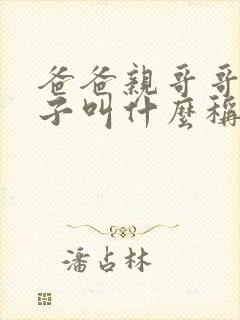 爸爸親哥哥
子叫什麼稱
潘占林